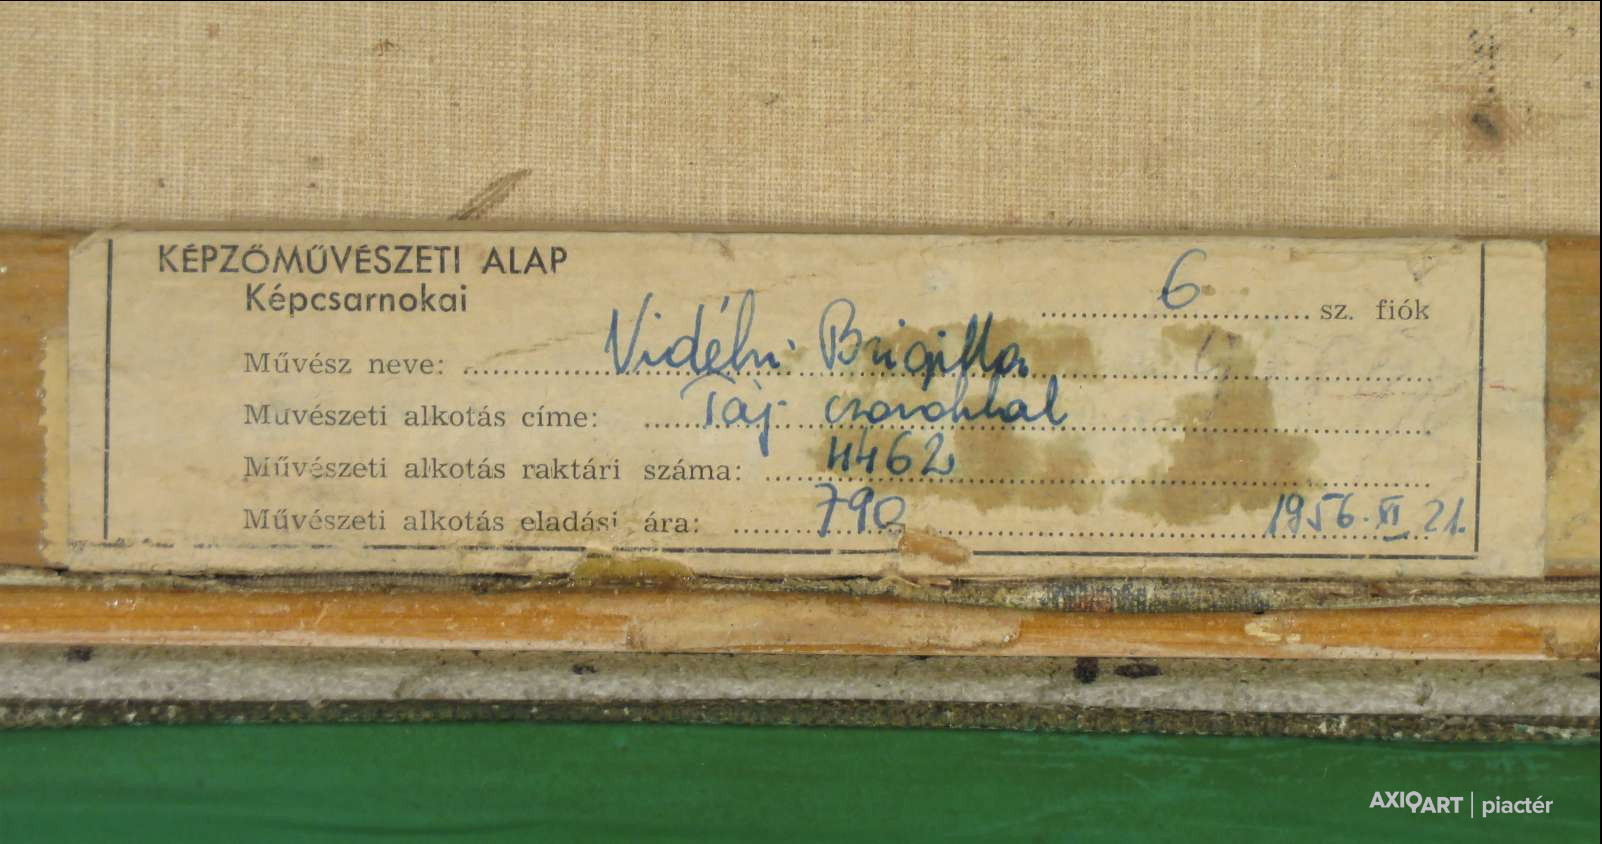 KÉPZŐMŰVÉSZETI ALAP
Képcsarnokai
6 sz. fiók
Művész neve: Vidéky Brigitta
Muvészeti alkotás címe: Táj csónakkal
Művészeti alkotás raktári száma: 4462
Művészeti alkotás eladási ára: 790 1956. XI 21.
AXIOART | piactér